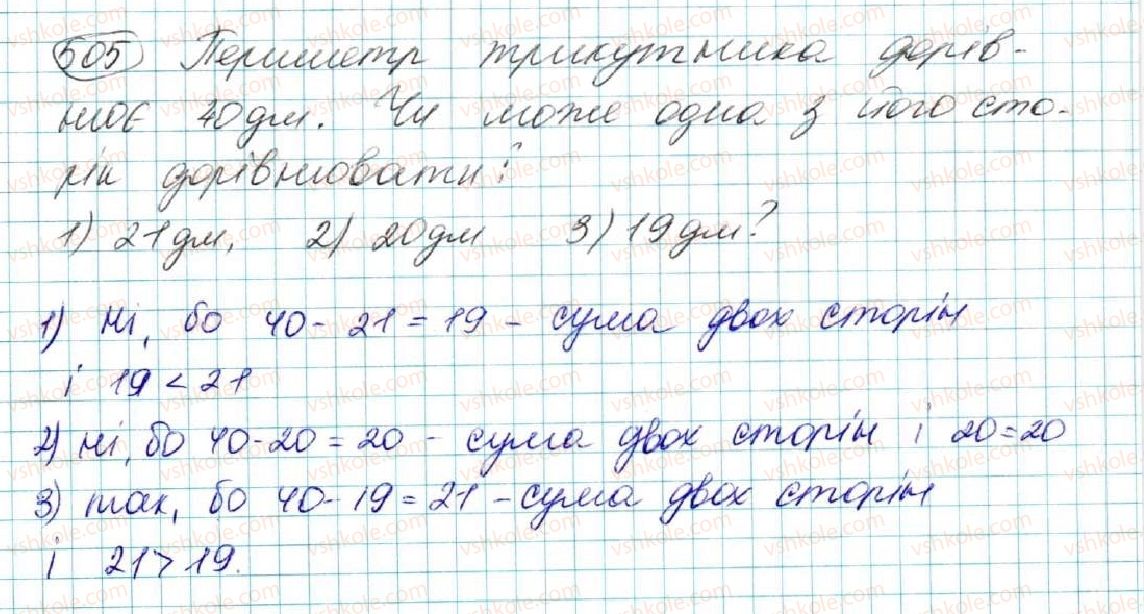 505 Периметр трикутника дорів-
нює 40дм. Чи може одна з його сто-
рін дорівнювати:
1) 21дм, 2) 20дм 3) 19дм?
1) ні, бо 40-21=19 - сума двох сторін
і 19<21
2) ні, бо 40-20=20 - сума двох сторін і 20=20
3) так, бо 40-19=21 - сума двох сторін
і 21>19.